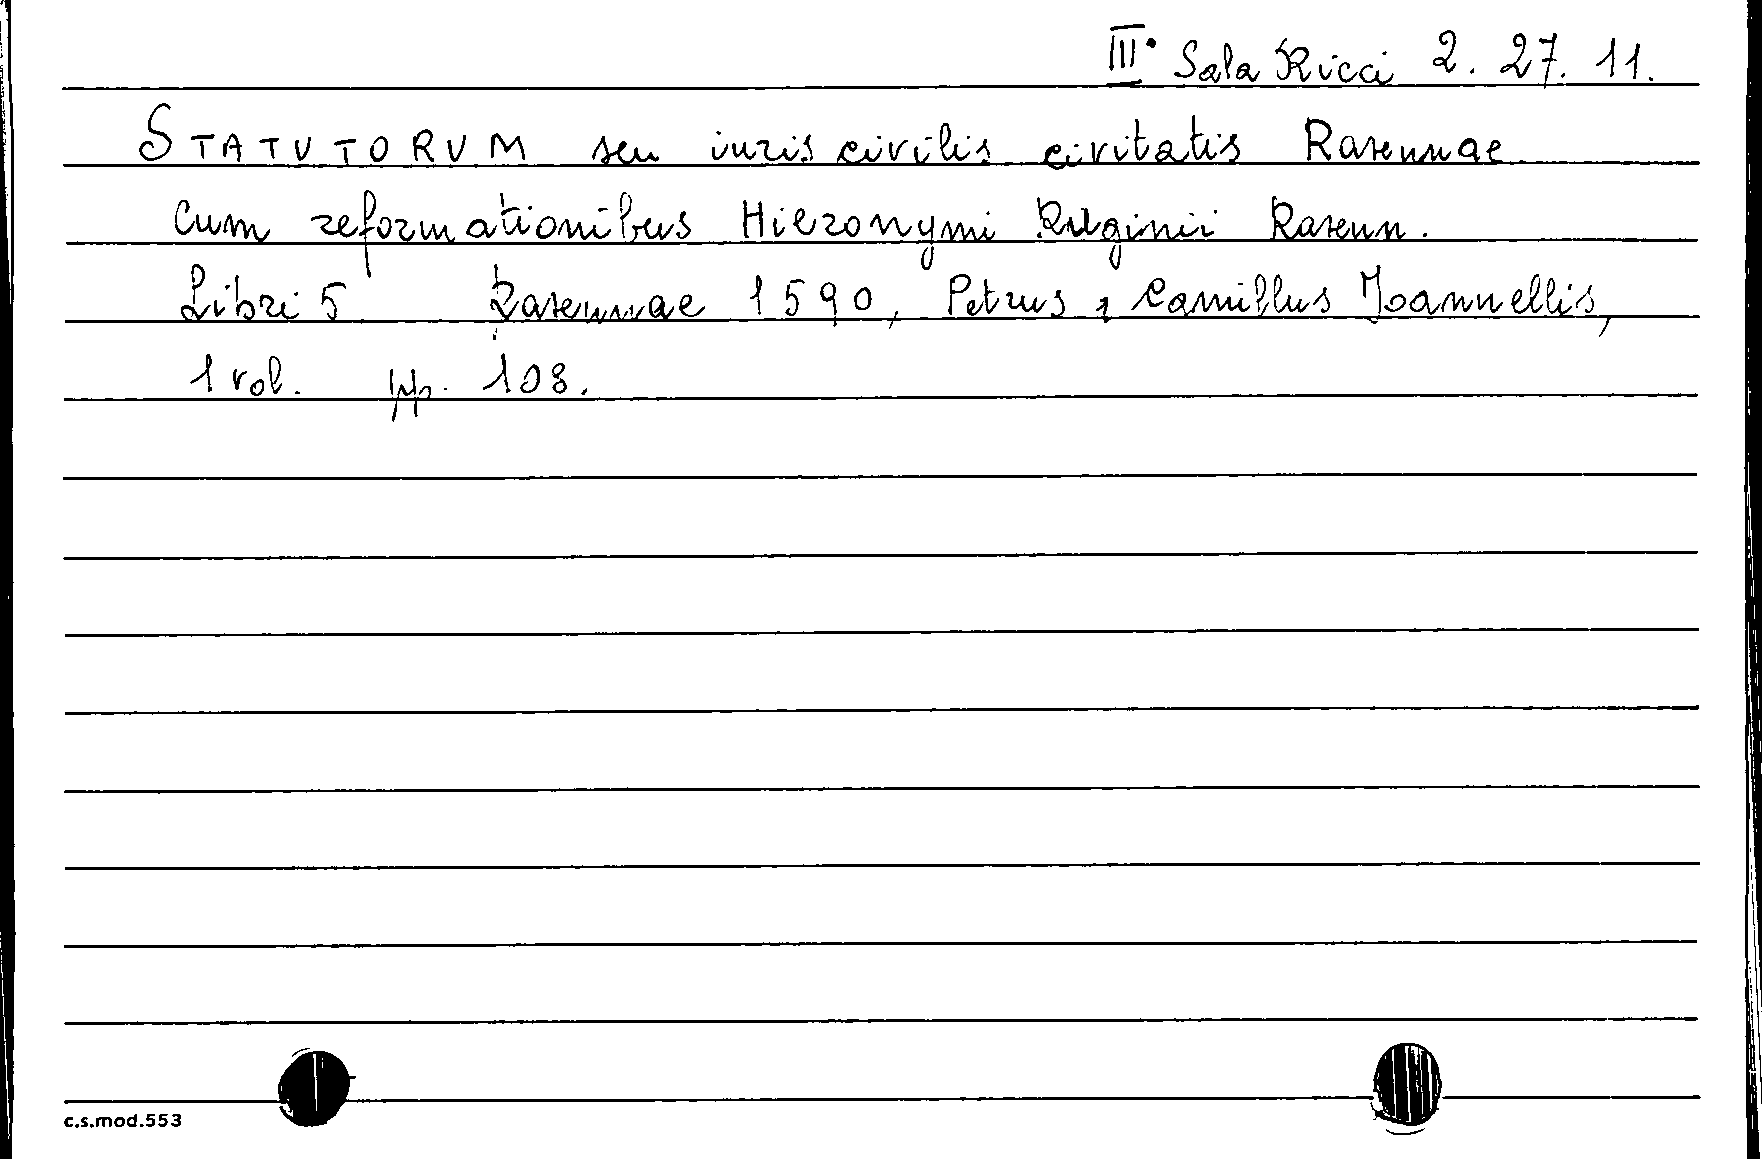 III° Sala Ricci 2. 27. 11.
STATUTORUM seu iuris civilis civitatis Ravennae
cum reformationibus Hieronymi Ruginii Ravenn.
Libri 5 Ravennae 1590, Petrus, Camillus Joannellis,
1 vol. pp. 108.
c.s.mod.553